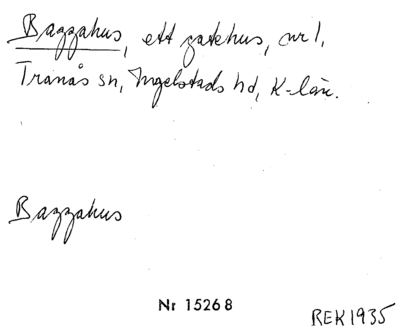 Baggahus, ett gatehus, nr 1,
Tranås sn, Ingelstads hd, K-län.
Baggahus
Nr 15268
REK 1935